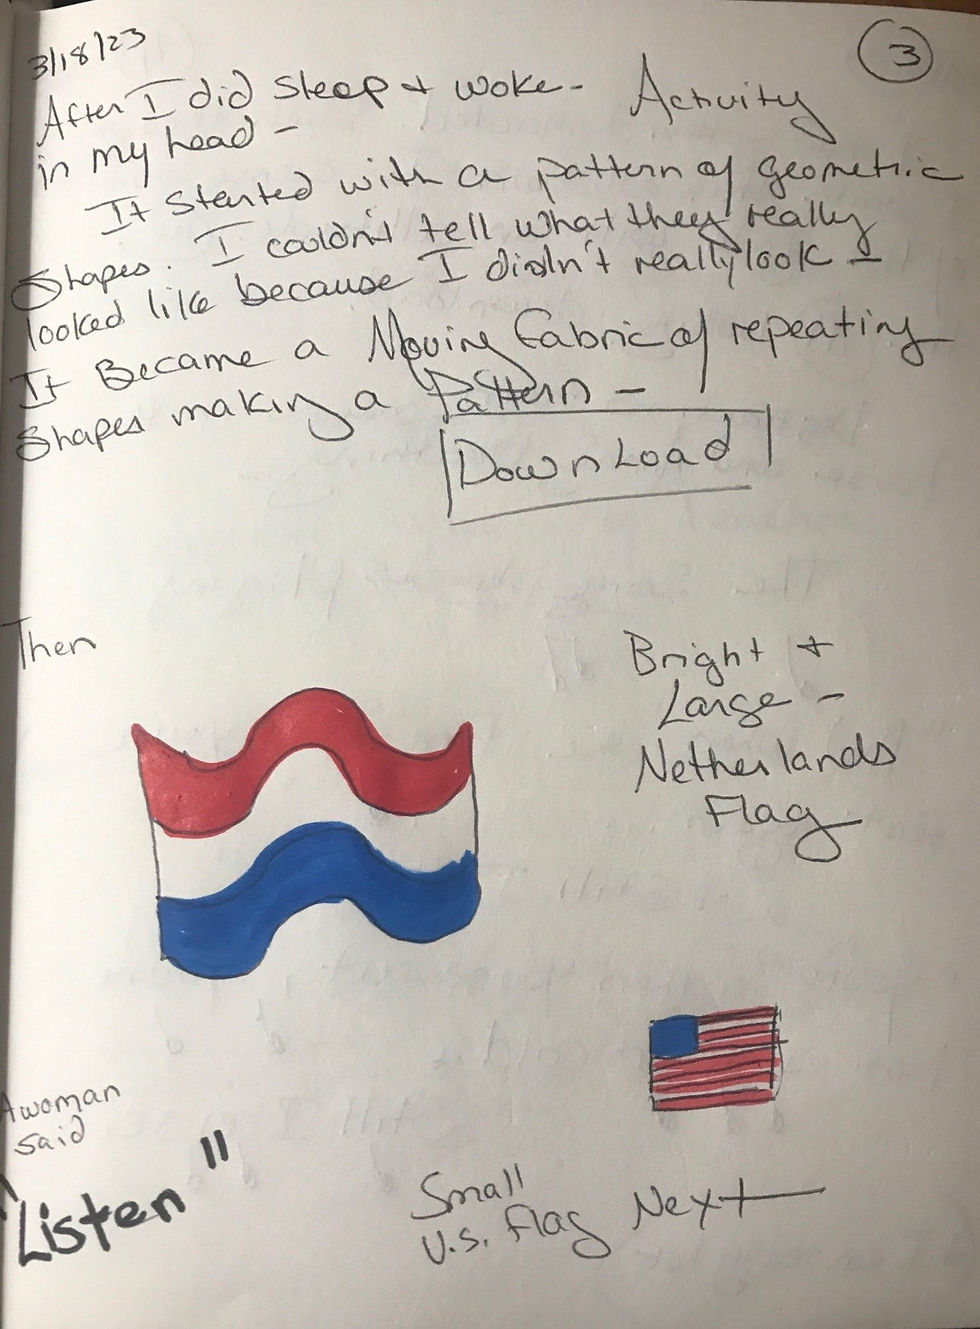 3/18/23
3
After I did sleep + woke - Activity
in my head -
It started with a pattern of geometric
Shapes. I couldn't tell what they really
looked like because I didn't really look -
It Became a Moving fabric of repeating
Shapes making a Pattern -
DownLoad
Then
Bright +
Large -
Netherlands
Flag
A woman
said
"Listen"
Small
U.S. Flag Next